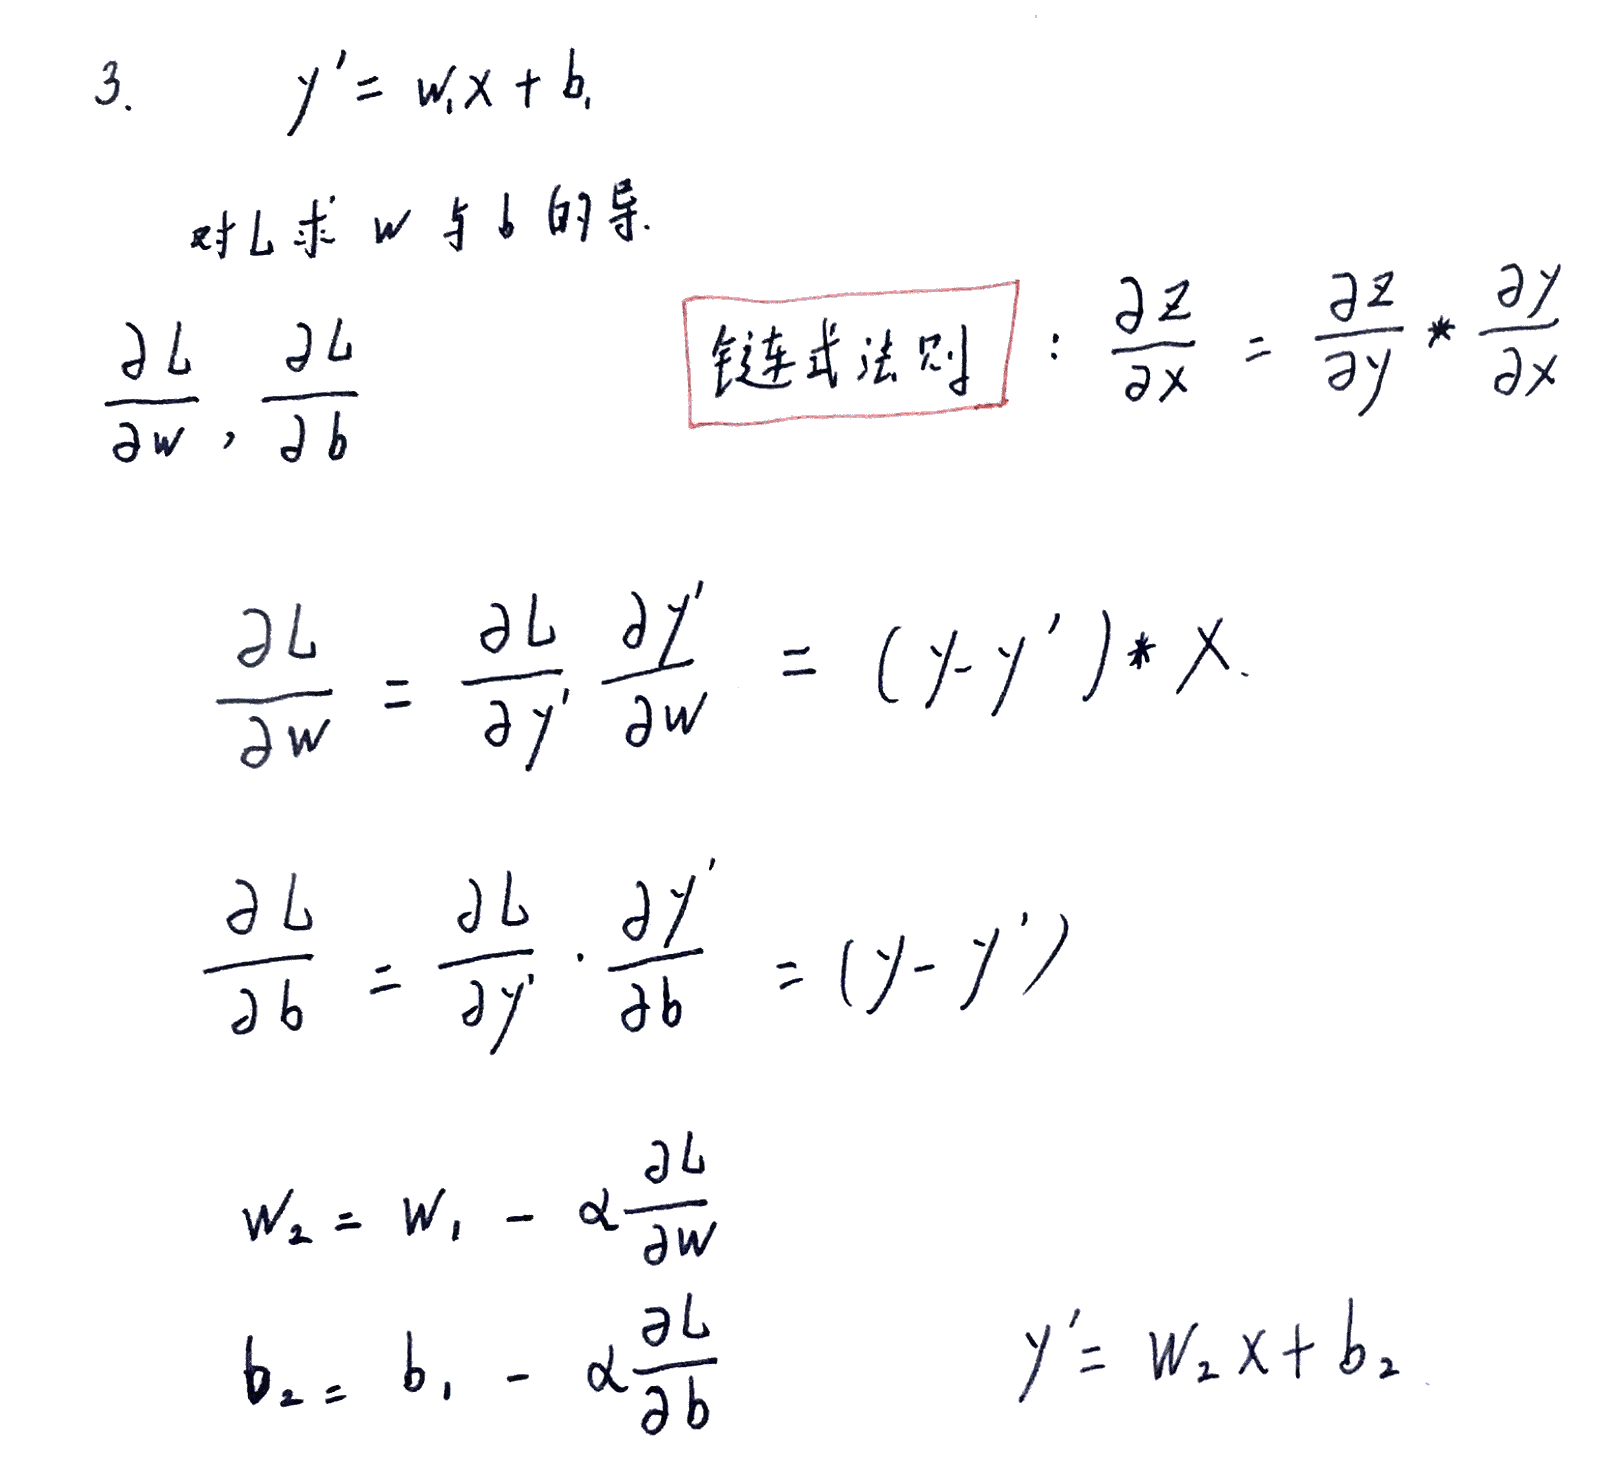 3. y' = w₁x + b₁
对L求 w 与 b 的导.
∂L/∂w , ∂L/∂b
链式法则 : ∂z/∂x = ∂z/∂y * ∂y/∂x
∂L/∂w = ∂L/∂y' ∂y'/∂w = (y-y')*x.
∂L/∂b = ∂L/∂y' · ∂y'/∂b = (y-y')
w₂ = w₁ - α ∂L/∂w
b₂ = b₁ - α ∂L/∂b
y' = w₂x + b₂